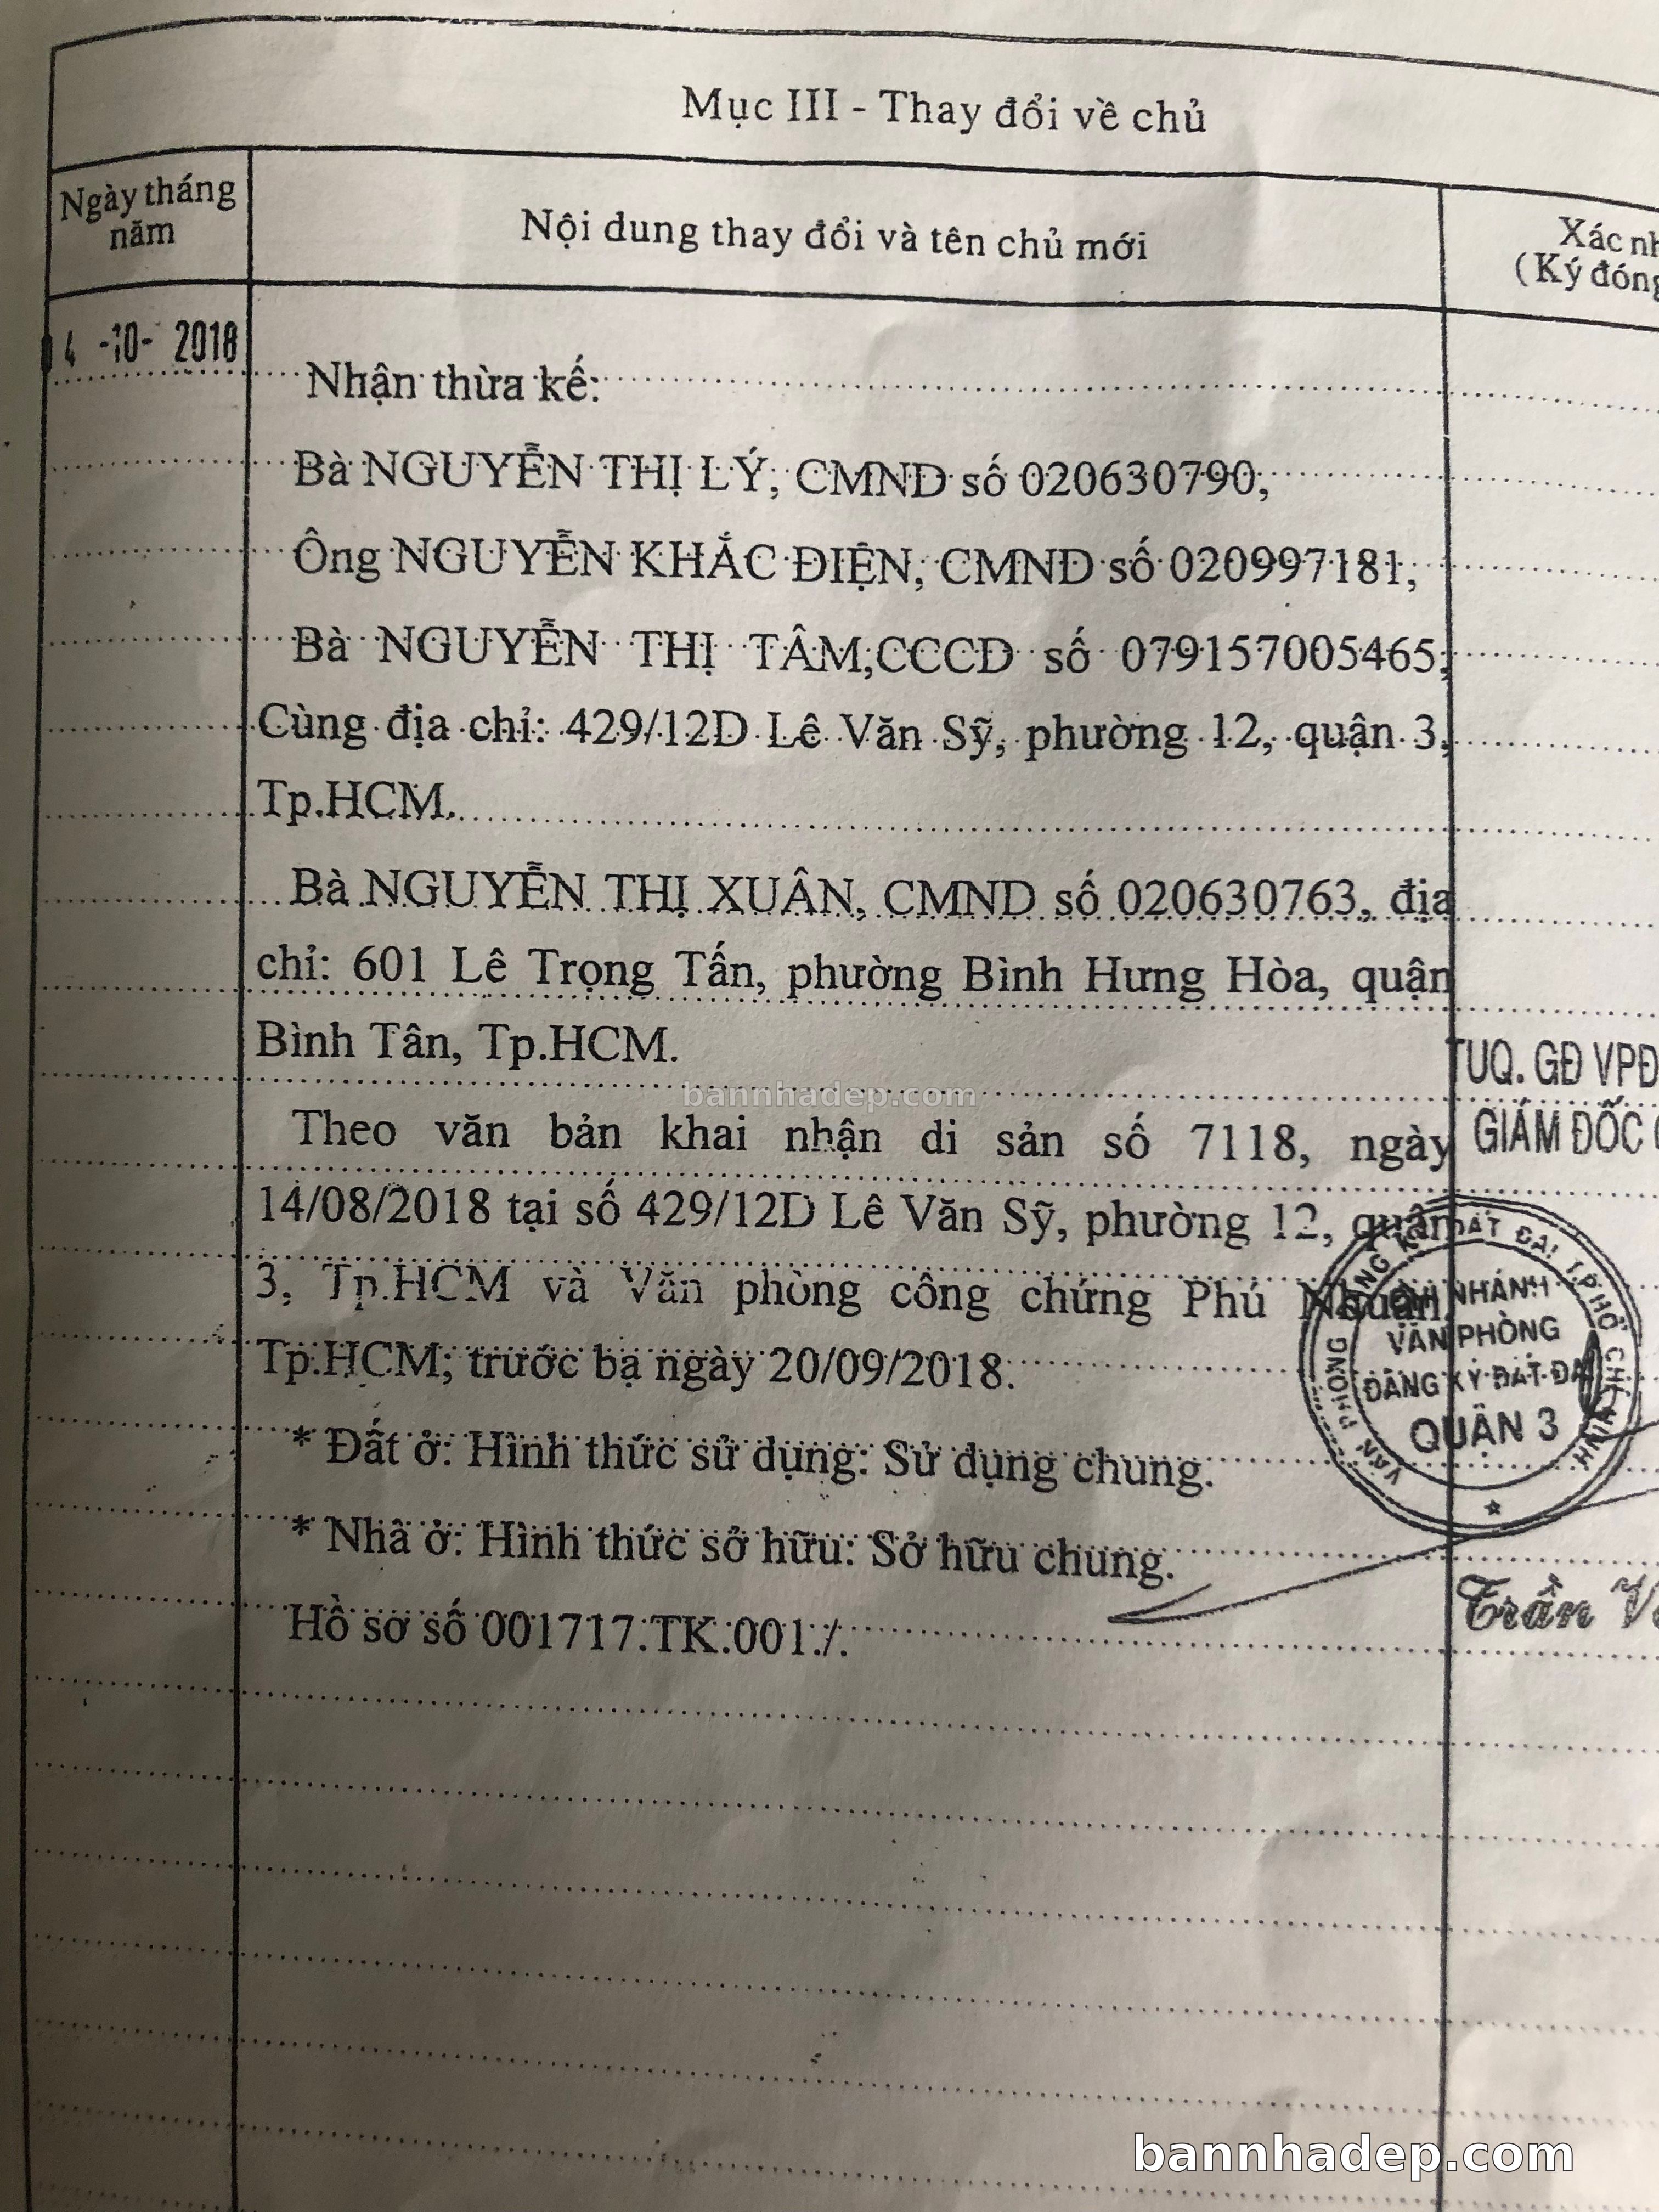 Mục III - Thay đổi về chủ
Ngày tháng
năm
Nội dung thay đổi và tên chủ mới
Xác
(Ký đóng
4 -10- 2018
Nhận thừa kế:
Bà NGUYỄN THỊ LÝ, CMND số 020630790,
Ông NGUYỄN KHẮC ĐIỆN, CMND số 020997181,
Bà NGUYỄN THỊ TÂM,CCCD số 079157005465,
Cùng địa chỉ: 429/12D Lê Văn Sỹ, phường 12, quận 3,
Tp.HCM.
Bà NGUYỄN THỊ XUÂN, CMND số 020630763, địa
chỉ: 601 Lê Trọng Tấn, phường Bình Hưng Hòa, quận
Bình Tân, Tp.HCM.
bannhadep.com
Theo văn bản khai nhận di sản số 7118, ngày
14/08/2018 tại số 429/12D Lê Văn Sỹ, phường 12, quận
3, Tp.HCM và Văn phòng công chứng Phú Nhuận,
Tp.HCM; trước bạ ngày 20/09/2018.
* Đất ở: Hình thức sử dụng: Sử dụng chung.
* Nhà ở: Hình thức sở hữu: Sở hữu chung.
Hồ sơ số 001717.TK.001./.
TUQ. GĐ VPĐ
GIÁM ĐỐC
VĂN PHÒNG ĐĂNG KÝ ĐẤT ĐAI T.P HỒ CHÍ MINH
CHI NHÁNH
VĂN PHÒNG
ĐĂNG KÝ ĐẤT ĐAI
QUẬN 3
Trần
bannhadep.com